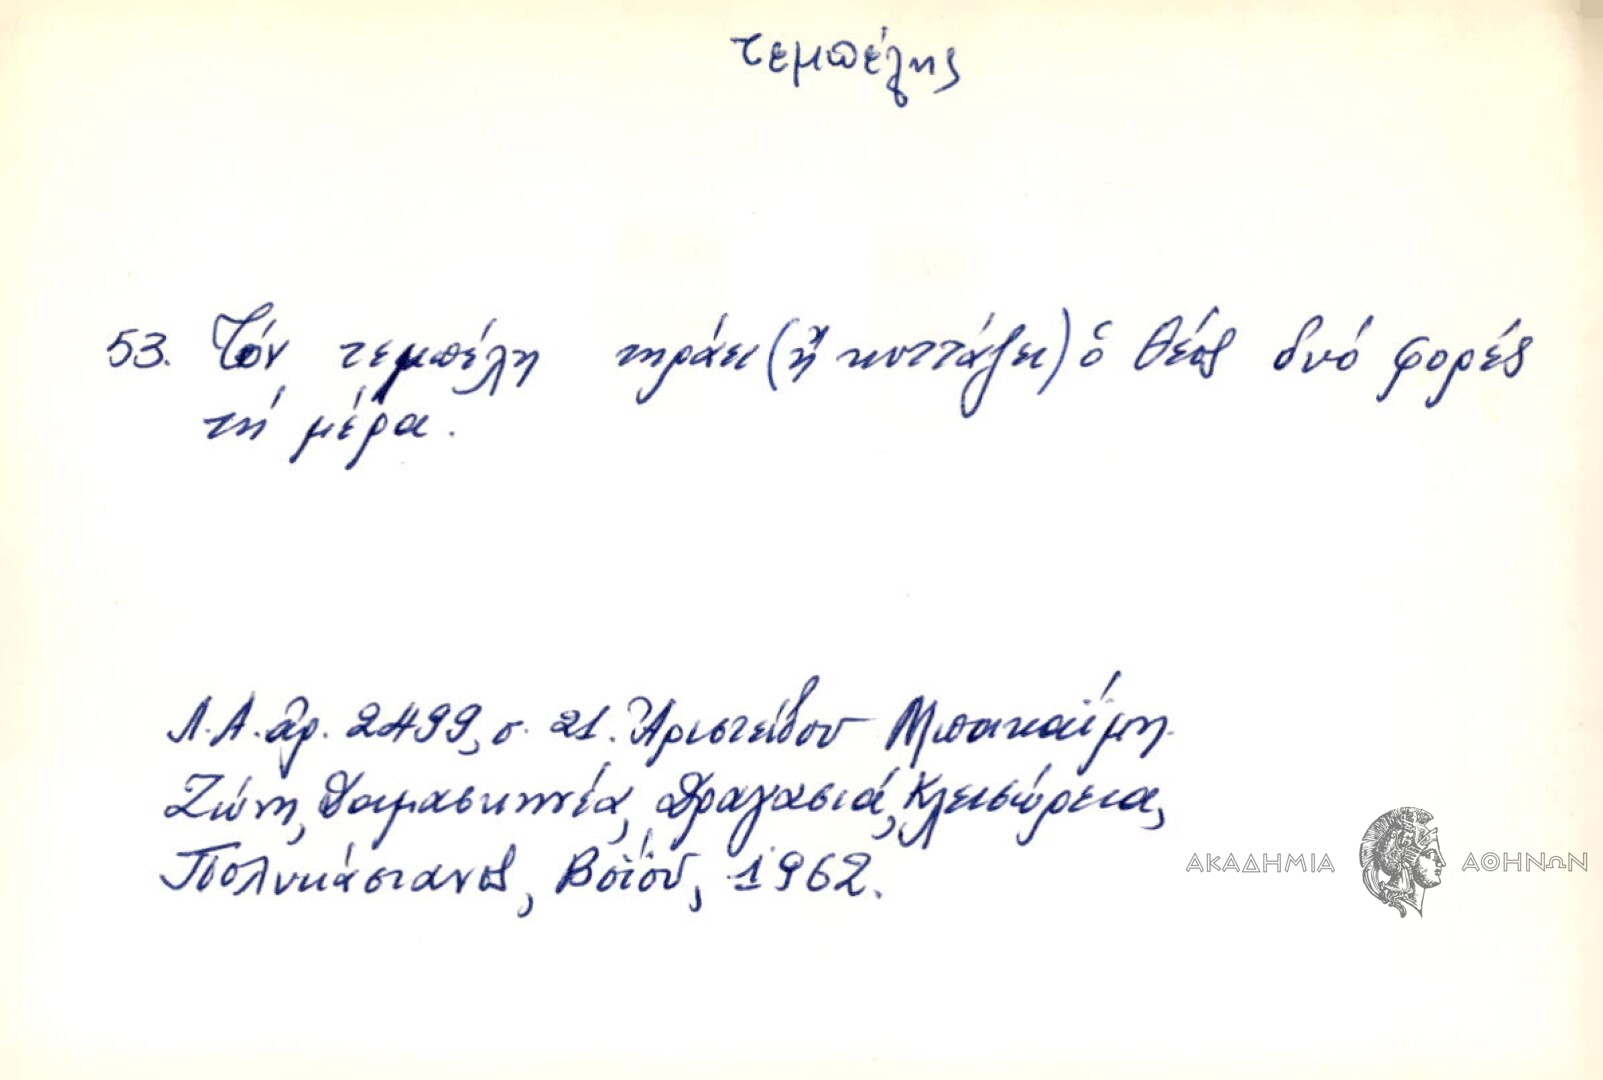 τεμπέλης
53. Τόν τεμπέλη τηράει (ἤ κυττάζει) ὁ θεός δυό φορές
τή μέρα.
Λ.Α. ἀρ. 2499, σ. 21. Ἀριστείδου
Ζώνη, Δαμασκηνέα, Δραγασιά, Κλεισώρεια,
Πολυκάστανος, Βοΐου, 1962.
ΑΚΑΔΗΜΙΑ ΑΘΗΝΩΝ